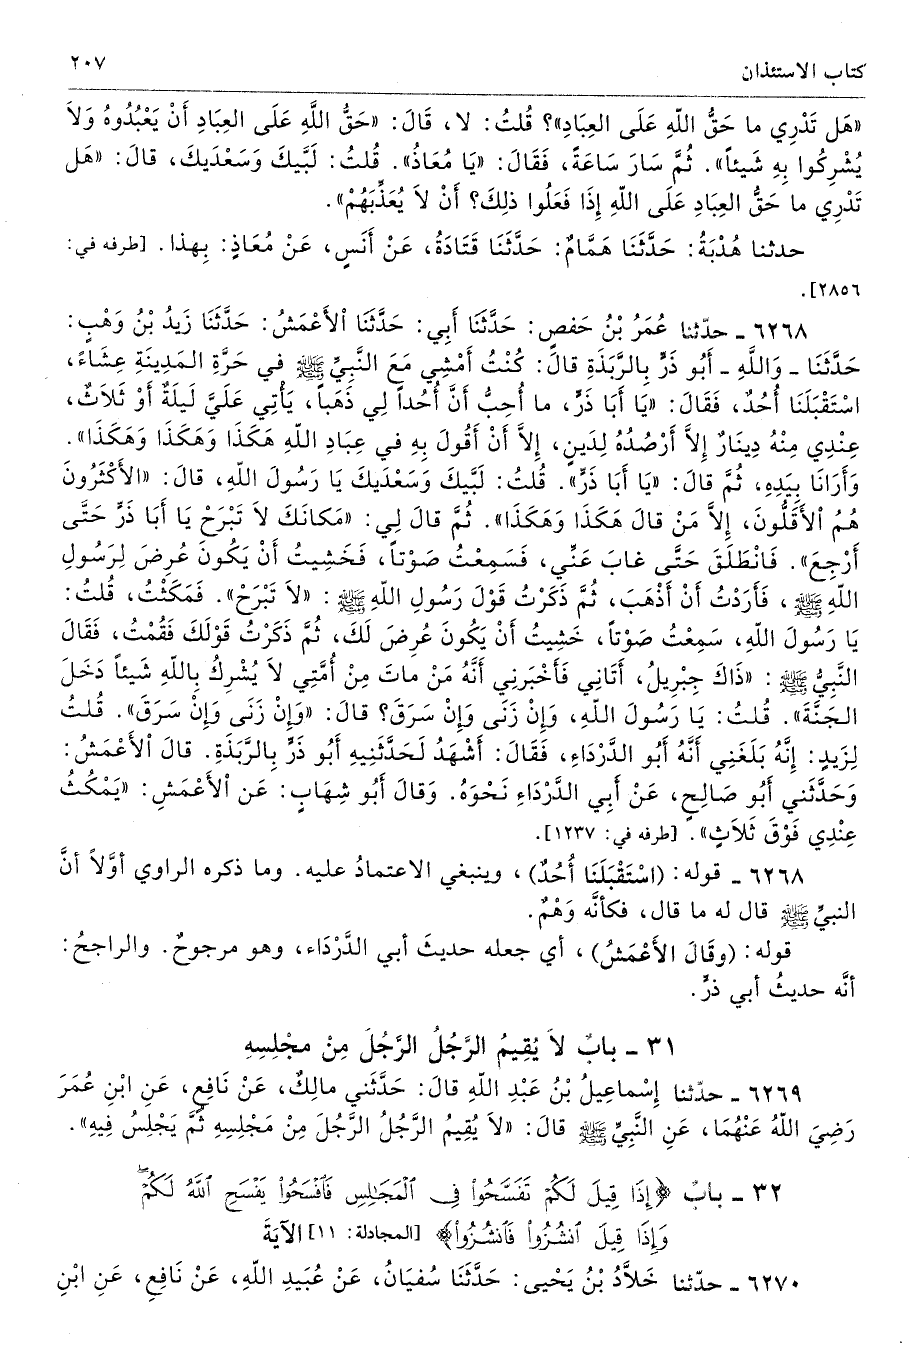 كتاب الاستئذان ٢٠٧
«هَل تَدْرِي ما حَقُّ اللّهِ عَلَى العِبَادِ»؟ قُلتُ: لا، قَالَ: «حَقُّ اللَّهِ عَلَى العِبَادِ أَنْ يَعْبُدُوهُ وَلاَ
يُشْرِكُوا بِهِ شَيئاً». ثُمَّ سَارَ سَاعَةً، فَقَالَ: «يَا مُعَاذُ». قُلتُ: لَبَّيكَ وَسَعْدَيكَ، قالَ: «هَل
تَدْرِي ما حَقُّ العِبَادِ عَلَى اللّهِ إِذَا فَعَلُوا ذلِكَ؟ أَنْ لاَ يُعَذِّبَهُمْ».
حدثنا هُدْبَةُ: حَدَّثَنَا هَمَّامٌ: حَدَّثَنَا قَتَادَةُ، عَنْ أَنَسٍ، عَنْ مُعَاذٍ: بِهذا. [طرفه في:
٢٨٥٦].
٦٢٦٨ ـ حدّثنا عُمَرُ بْنُ حَفصٍ: حَدَّثَنَا أَبِي: حَدَّثَنَا ٱلأَعْمَشُ: حَدَّثَنَا زَيدُ بْنُ وَهْبٍ:
حَدَّثَنَا ـ وَاللَّهِ ـ أَبُو ذَرٍّ بِالرَّبَذَةِ قالَ: كُنْتُ أَمْشِي مَعَ النَّبِيِّ ﷺ في حَرَّةِ المَدِينَةِ عِشَاءً،
اسْتَقْبَلَنَا أُحُدٌ، فَقَالَ: «يَا أَبَا ذَرٍّ، ما أُحِبُّ أَنَّ أُحُداً لِي ذَهَباً، يَأْتِي عَلَيَّ لَيلَةٌ أَوْ ثَلاَثٌ،
عِنْدِي مِنْهُ دِينَارٌ إِلاَّ أَرْصُدُهُ لِدَينٍ، إِلاَّ أَنْ أَقُولَ بِهِ في عِبَادِ اللّهِ هَكَذَا وَهَكَذَا وَهَكَذَا».
وَأَرَانَا بِيَدِهِ، ثُمَّ قالَ: «يَا أَبَا ذَرٍّ». قُلتُ: لَبَّيكَ وَسَعْدَيكَ يَا رَسُولَ اللّهِ، قالَ: «الأَكْثَرُونَ
هُمُ ٱلأَقَلُّونَ، إِلاَّ مَنْ قالَ هَكَذَا وَهَكَذَا». ثُمَّ قالَ لِي: «مَكانَكَ لاَ تَبْرَحْ يَا أَبَا ذَرٍّ حَتَّى
أَرْجِعَ». فَانْطَلَقَ حَتَّى غابَ عَنِّي، فَسَمِعْتُ صَوْتاً، فَخَشِيتُ أَنْ يَكُونَ عُرِضَ لِرَسُولِ
اللّهِ ﷺ، فَأَرَدْتُ أَنْ أَذْهَبَ، ثُمَّ ذَكَرْتُ قَوْلَ رَسُولِ اللّهِ ﷺ: «لاَ تَبْرَحْ». فَمَكَثْتُ، قُلتُ:
يَا رَسُولَ اللّهِ، سَمِعْتُ صَوْتاً، خَشِيتُ أَنْ يَكُونَ عُرِضَ لَكَ، ثُمَّ ذَكَرْتُ قَوْلَكَ فَقُمْتُ، فَقَالَ
النَّبِيُّ ﷺ: «ذَاكَ جِبْرِيلُ، أَتَانِي فَأَخْبَرَنِي أَنَّهُ مَنْ ماتَ مِنْ أُمَّتِي لاَ يُشْرِكُ بِاللّهِ شَيئاً دَخَلَ
الجَنَّةَ». قُلتُ: يَا رَسُولَ اللّهِ، وَإِنْ زَنَى وَإِنْ سَرَقَ؟ قالَ: «وَإِنْ زَنَى وَإِنْ سَرَقَ». قُلتُ
لِزَيدٍ: إِنَّهُ بَلَغَنِي أَنَّهُ أَبُو الدَّرْدَاءِ، فَقَالَ: أَشْهَدُ لَحَدَّثَنِيهِ أَبُو ذَرٍّ بِالرَّبَذَةِ. قالَ ٱلأَعْمَشُ:
وَحَدَّثَنِي أَبُو صَالِحٍ، عَنْ أَبِي الدَّرْدَاءِ نَحْوَهُ. وَقالَ أَبُو شِهَابٍ: عَنِ ٱلأَعْمَشِ: «يَمْكُثُ
عِنْدِي فَوْقَ ثَلاَثٍ». [طرفه في: ١٢٣٧].
٦٢٦٨ ـ قوله: (اسْتَقْبَلَنَا أُحُدٌ)، وينبغي الاعتمادُ عليه. وما ذكره الراوي أوَّلاً أنَّ
النبيِّ ﷺ قال له ما قال، فكأنَّه وَهْمٌ.
قوله: (وقَالَ الأَعْمَشُ)، أي جعله حديثَ أبي الدَّرْدَاء، وهو مرجوحٌ. والراجحُ:
أنَّه حديثُ أبي ذرٍّ.
٣١ ـ بابٌ لاَ يُقِيمُ الرَّجُلُ الرَّجُلَ مِنْ مَجْلِسِهِ
٦٢٦٩ ـ حدّثنا إِسْماعِيلُ بْنُ عَبْدِ اللّهِ قالَ: حَدَّثَنِي مالِكٌ، عَنْ نَافِعٍ، عَنِ ابْنِ عُمَرَ
رَضِيَ اللّهُ عَنْهُمَا، عَنِ النَّبِيِّ ﷺ قالَ: «لاَ يُقِيمُ الرَّجُلُ الرَّجُلَ مِنْ مَجْلِسِهِ ثُمَّ يَجْلِسُ فِيهِ».
٣٢ ـ بابٌ ﴿إِذَا قِيلَ لَكُمْ تَفَسَّحُوا۟ فِى ٱلْمَجَٰلِسِ فَٱفْسَحُوا۟ يَفْسَحِ ٱللَّهُ لَكُمْۖ
وَإِذَا قِيلَ ٱنشُزُوا۟ فَٱنشُزُوا۟﴾ [المجادلة: ١١] الآيَةَ
٦٢٧٠ ـ حدّثنا خَلاَّدُ بْنُ يَحْيى: حَدَّثَنَا سُفيَانُ، عَنْ عُبَيدِ اللّهِ، عَنْ نَافِعٍ، عَنِ ابْنِ